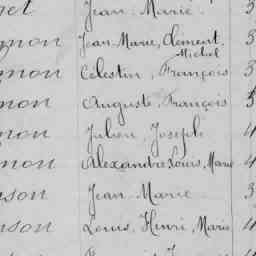 get Jean Marie 3
mon Jean Marie, Clément 3
Michel
mon Célestin, François 3
mon Auguste, François 3
mon Julien Joseph 4
mon Alexandre Louis, Marie 4
son Jean Marie 3
son Louis, Henri, Marie 4